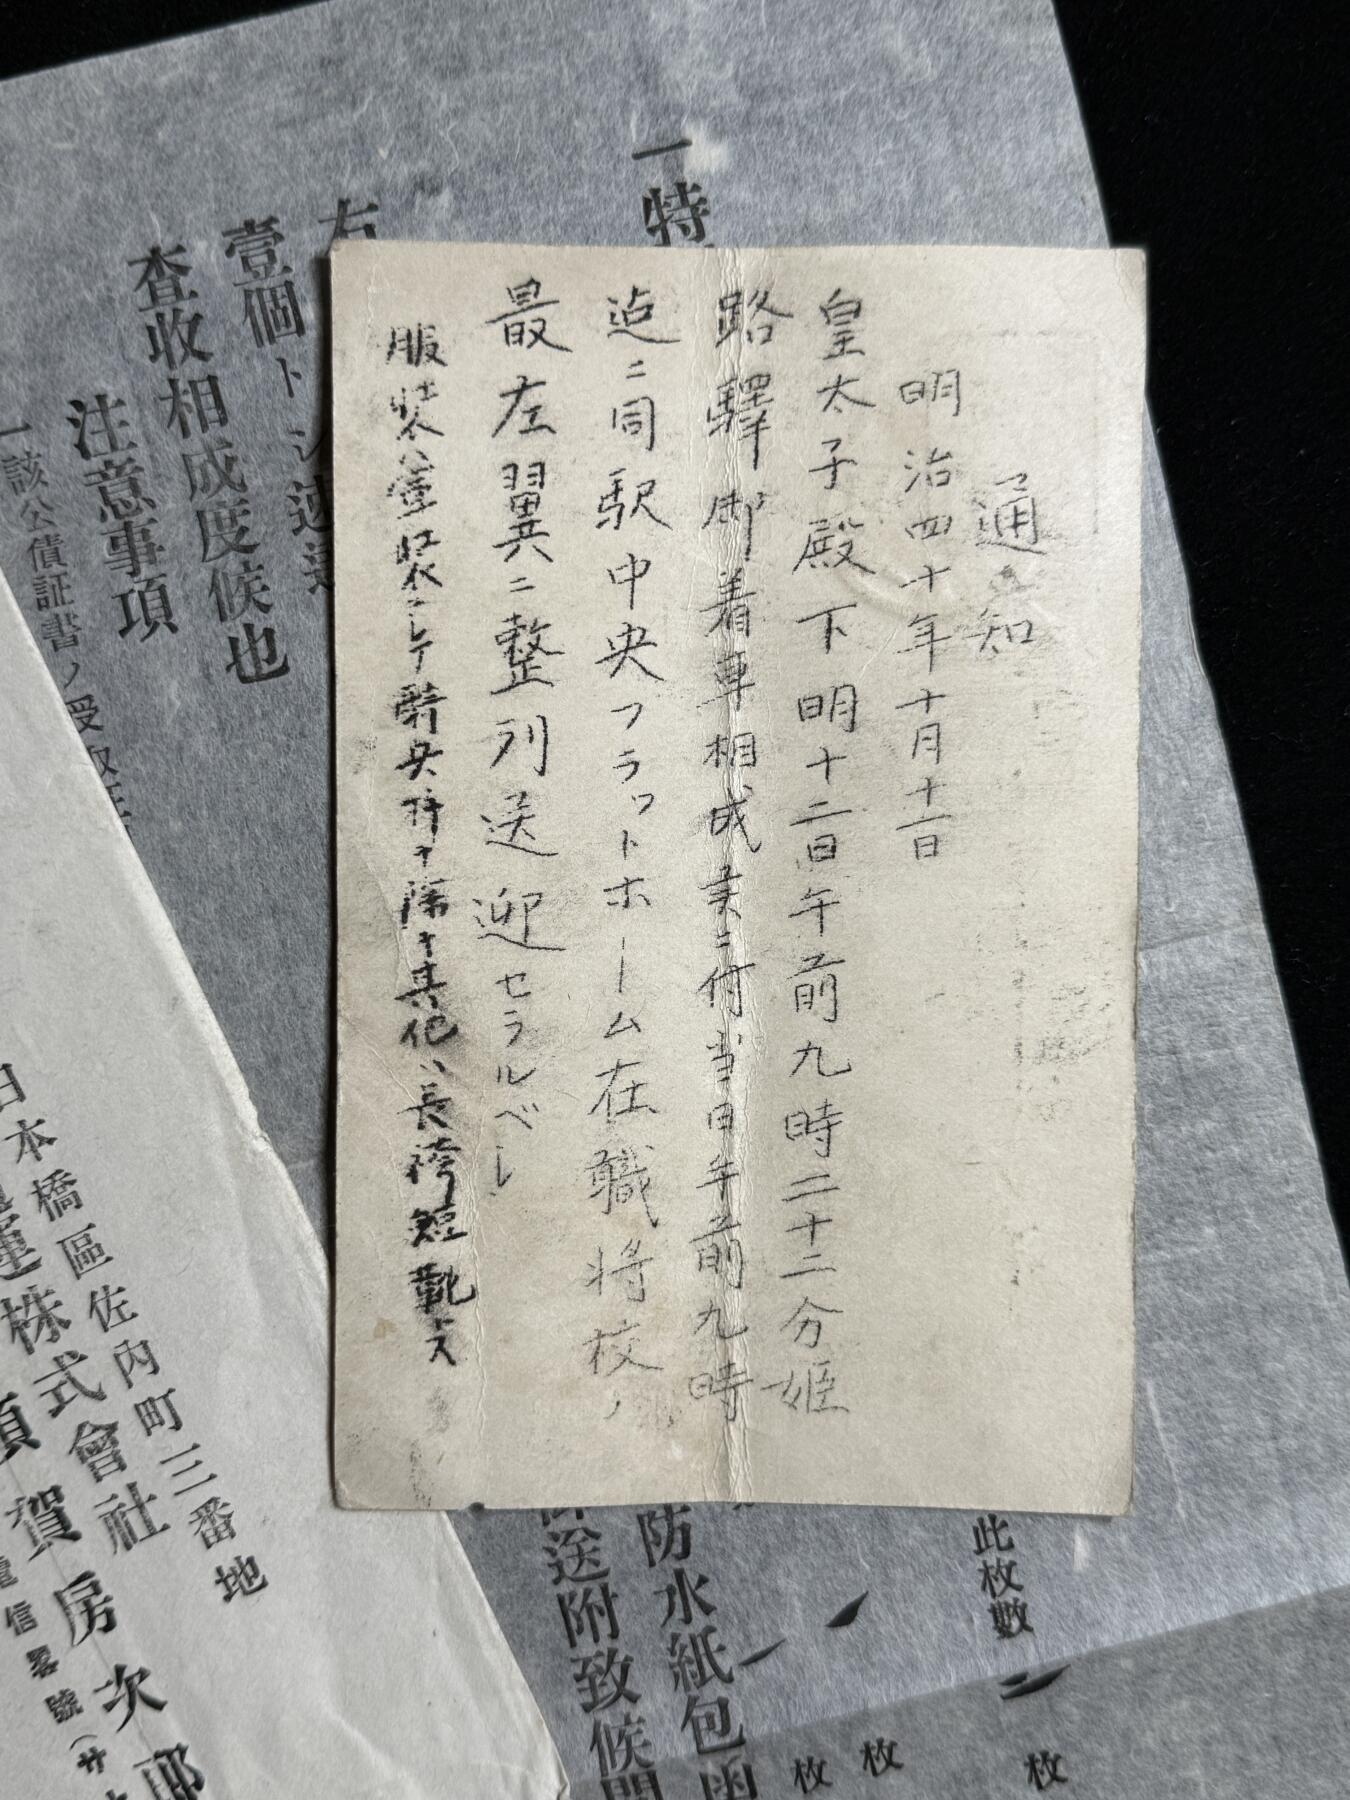 通知
明治四十年十月十一日
皇太子殿下明十二日午前九時二十二分姫
路驛御着車相成候ニ付当日午前九時
迠ニ同駅中央フラットホーム在職将校ノ
最左翼ニ整列送迎セラルベシ
服装ハ軍装ニシテ騎央科ヲ除ク其他ハ長袴短靴
一特
右
壹個トシ速達
査收相成度候也
注意事項
一該公債証書ノ受取
防水紙包函
送附致候間
此枚數
枚
枚
枚
日本橋區佐内町三番地
運株式會社
須賀房次郎
電信畧號(サ